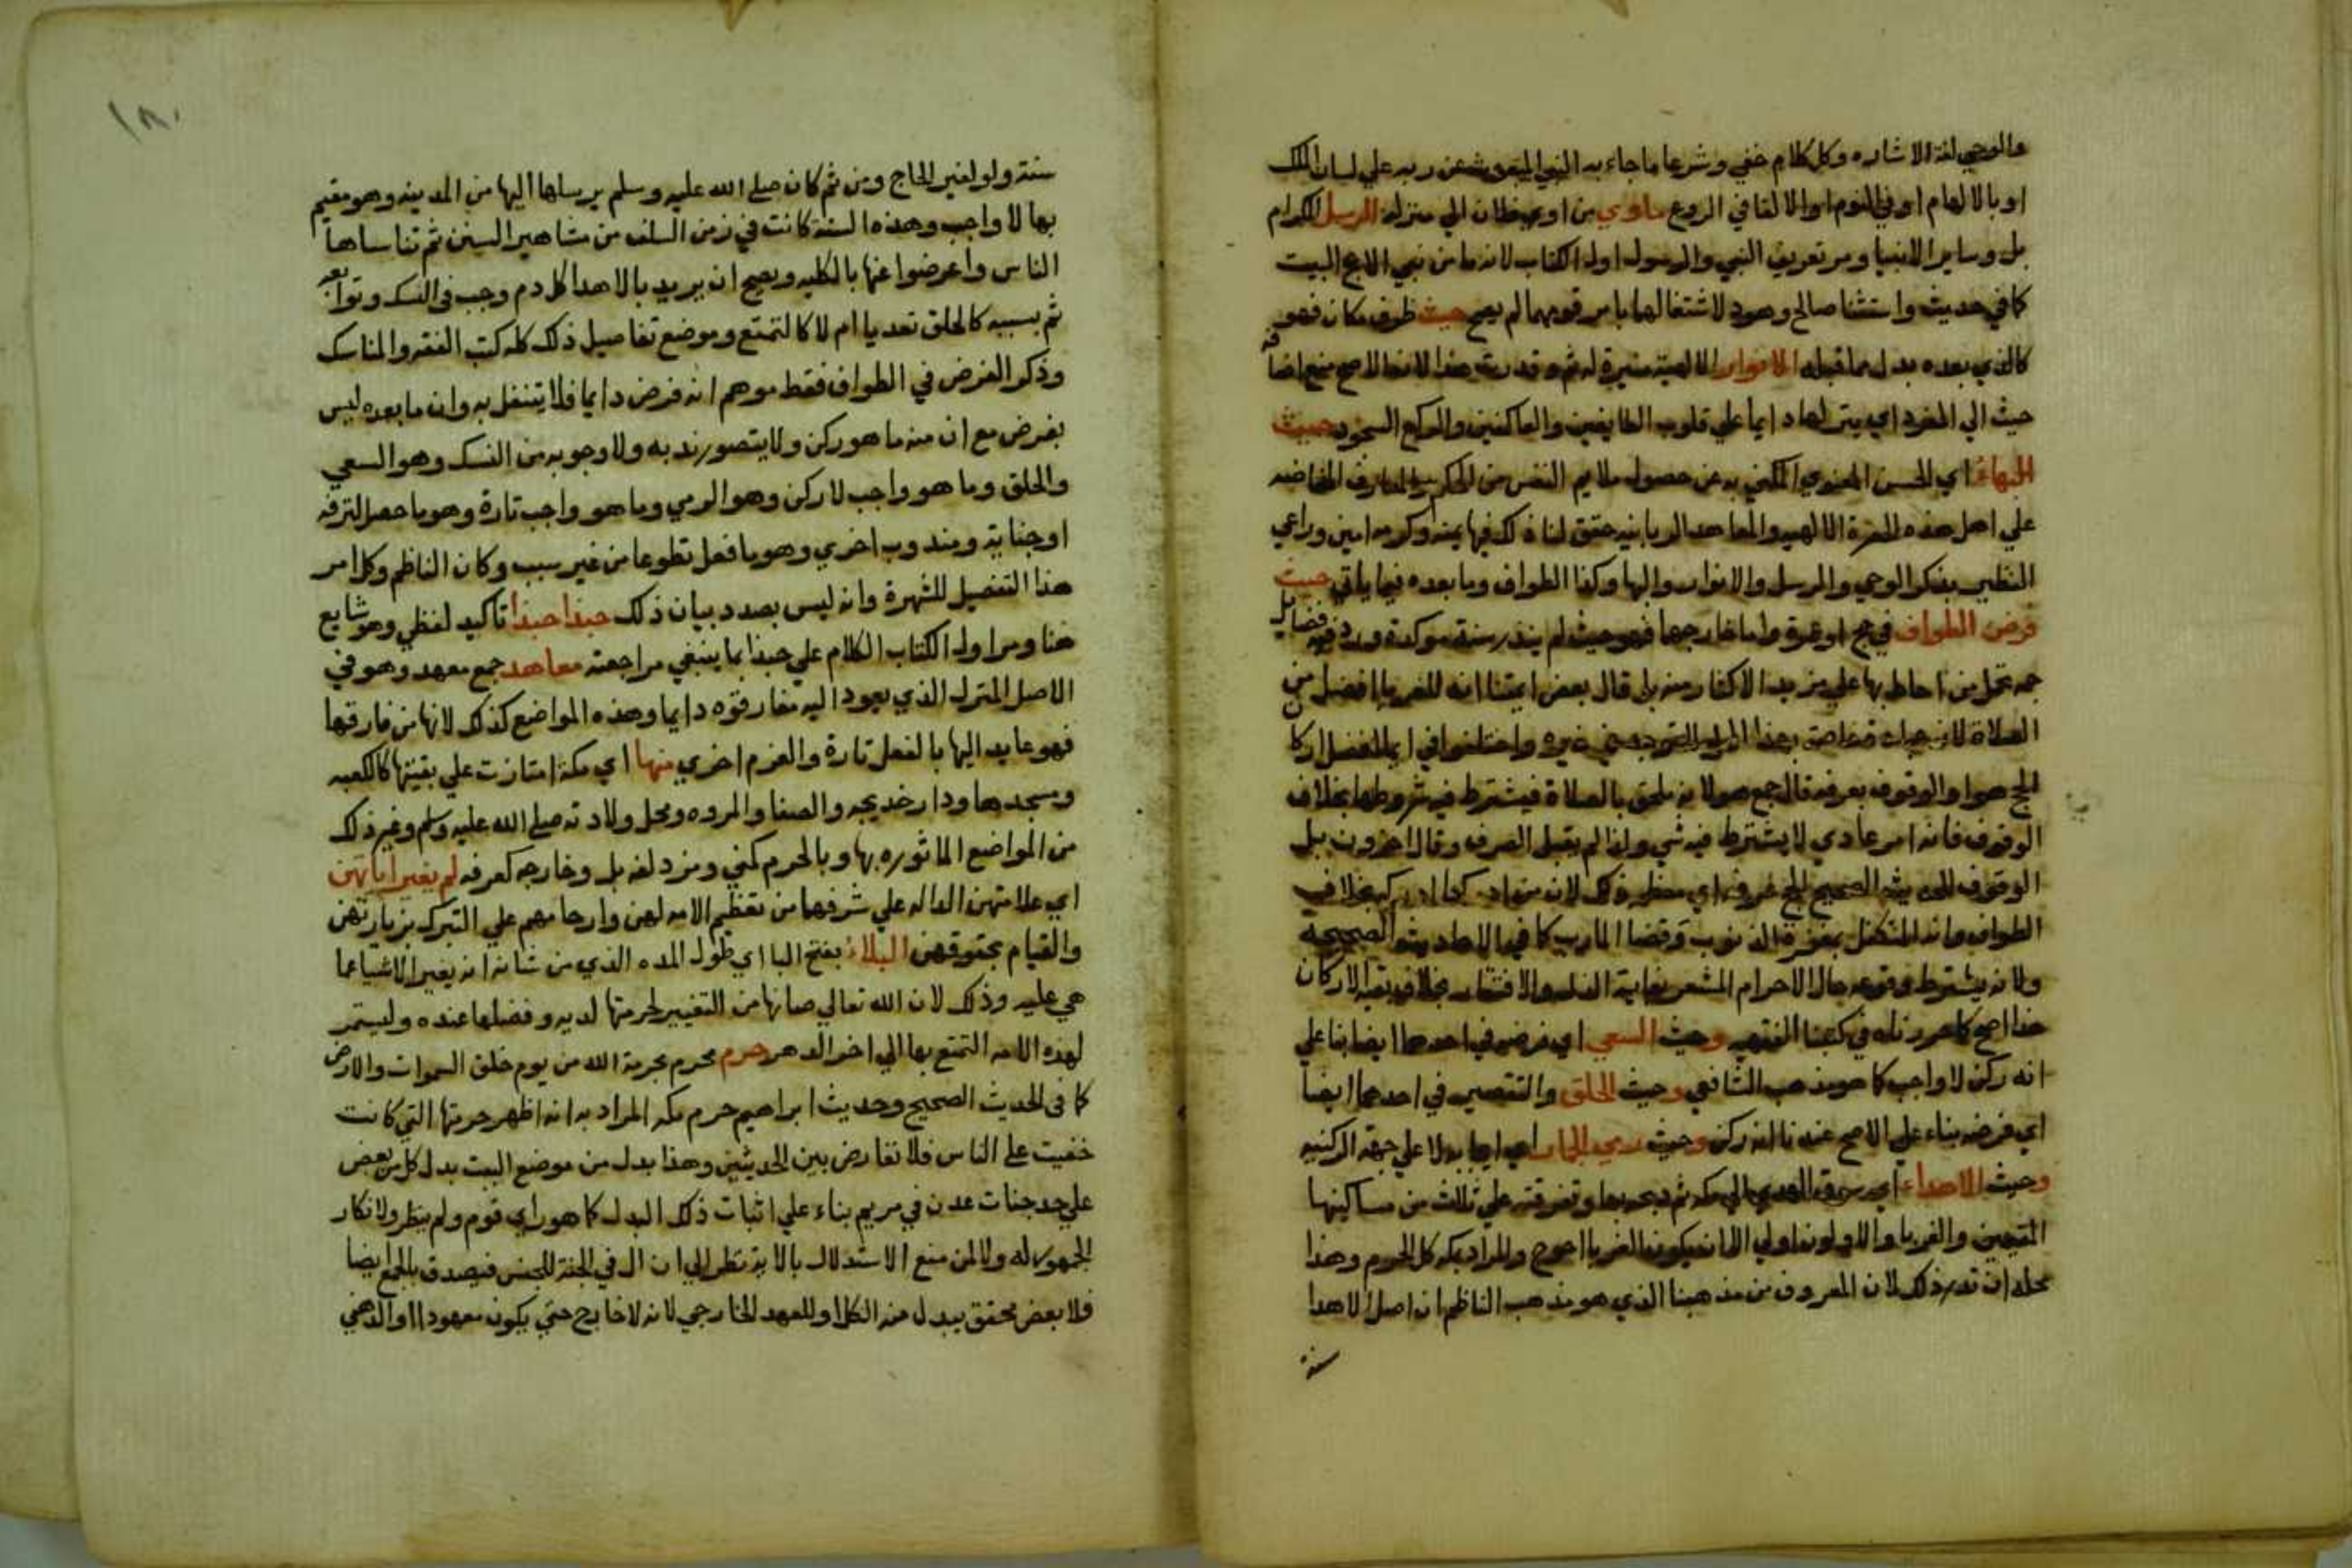 والوحي لغة الاشاره وكل كلام خفي وشرعا ما جاء به النبي المبعوث عن ربه علي لسان الملك
او بالالهام او في النوم او الالقا في الروع ماوي من اوي خطان الي منزله الرسل الكرام
بل وساير الانبيا ومر تعريف النبي والرسول اول الكتاب لانه ما من نبي الا حج البيت
كما في حديث واستثنا صالح وهود لاشتغالهما بامر قومهما لم يصح حيث ظرف مكان فهو
كالذي بعده بدل مما قبله الانوار الالهية منيرة له ثم وقدرت هذا لان الاصح منع اضافة
حيث الي المفرد اي يتوالها دايما علي قلوب الطايفين والعاكفين والركع السجود حيث
البهاء اي الحسن المعنوي المكني به عن حصول ملايم النفس من الحكم والمعارف الفاضه
علي اهل هذه الحضرة الالهيه والمعاهد الربانيه حقق لنا ذلك فيها بمنه وكرمه امين وراعي
النظير بذكر الوحي والرسل والانوار والبها وكذا الطواف وما بعده فيما ياتي حيث
فرض الطواف في حج او عمرة واما خارجها فهو حيث لم ينذر سنة موكدة ورد فيه فضايل
جمه تحمل من احاط بها علي مزيد الاكثار منه بل قال بعض ايمتنا انه للغربا افضل من
الصلاة لانهم خاصة بهذا المحل لا توجد في غيره واختلفوا في ايما افضل اركان
الحج هو او الوقوف بعرفه قال جمع هو لانه ملحق بالصلاة فيشترط فيه شروطها بخلاف
الوقوف فانه امر عادي لا يشترط فيه شي ولذا لم يقبل الصرف وقال اخرون بل
الوقوف للحديث الصحيح الحج عرفه اي معظمه ذلك لان من ادركه ادركه بخلاف
الطواف وانه المتكفل بمغفرة الذنوب وقضا المارب كما في الاحاديث الصحيحة
ولانه يشترط وقوعه حال الاحرام المشعر بغاية الذله والافتقار بخلاف بقية الاركان
هذا اصح كما حررناه في كتبنا الفقهيه وحيث السعي اي فرضه في احدهما ايضا بنا علي
انه ركن لا واجب كما هو مذهب الشافعي وحيث الحلق والتقصير في احدهما ايضا
اي فرضه بناء علي الاصح عندنا انه ركن وحيث رمي الجمار اي ايجابه لا علي جهة الركنيه
وحيث الاهداء اي سوق الهدي الي مكه ثم ذبحه بها وتفرقته علي ثلاث من مساكينها
المقيمين والغربا والاولون اولي الا ان يكون الغربا احوج والمراد بمكه كل الحرم وهذا
محله ان نذر ذلك لان المعروف من مذهبنا الذي هو مذهب الناظم ان اصل الاهدا
سنة
١٨٠
سنة ولو لغير الحاج ومن ثم كان صلي الله عليه وسلم يرسلها اليها من المدينه وهو مقيم
بها لا واجب وهذه السنة كانت في زمن السلف من مشاهير السنن ثم تناساها
الناس واعرضوا عنها بالكليه ويصح ان يريد بالاهدا كل دم وجب في النسك وتوابعه
ثم بسببه كالحلق تعديا ام لا كالتمتع وموضع تفاصيل ذلك كله كتب الفقه والمناسك
وذكر الفرض في الطواف فقط موهم انه فرض دايما فلا يتنفل به وان ما بعده ليس
بفرض مع ان منه ما هو ركن ولا يتصور ندبه ولا وجوبه من النسك وهو السعي
والحلق وما هو واجب لا ركن وهو الرمي وما هو واجب تارة وهو ما حصل لترفه
او جناية ومندوب اخري وهو ما فعل تطوعا من غير سبب وكان الناظم وكل امر
هذا التفصيل للشهرة وانه ليس بصدد بيان ذلك حبذا حبذا تاكيد لفظي وهو شايع
هنا ومر اول الكتاب الكلام علي حبذا بما ينبغي مراجعته معاهد جمع معهد وهو في
الاصل المنزل الذي يعود اليه مفارقوه دايما وهذه المواضع كذلك لانها من فارقها
فهو عايد اليها بالفعل تارة والعزم اخري منها اي مكة امتازت علي بقيتها كالكعبه
ومسجدها ودار خديجه والصفا والمروه ومحل ولادته صلي الله عليه وسلم وغير ذلك
من المواضع الماثوره بها وبالحرم كمني ومزدلفه بل وخارجه كعرفه لم يغير اياتهن
اي علامتهن الداله علي شرفهما من تعظيم الامه لهن وازحامهم علي التبرك بزيارتهن
والقيام بحقوقهن البلاء بفتح البا اي طول المده الذي من شانه انه يغير الاشيا عما
هي عليه وذلك لان الله تعالي صانها من التغيير لحرمتها لديه وفضلها عنده وليستمر
لهذه الامه التمتع بها الي اخر الدهر حرم محرم بحرمة الله من يوم خلق السموات والارض
كما في الحديث الصحيح وحديث ابراهيم حرم مكه المراد به انه اظهر حرمتها التي كانت
خفيت علي الناس فلا تعارض بين الحديثين وهذا بدل من موضع البيت بدل كل من بعض
علي حد جنات عدن في مريم بناء علي اثبات ذلك البدل كما هو راي قوم ولم ينظر ولانكار
الجمهور له ولا لمن منع الاستدلال بالاية نظرا الي ان ال في الجنة للجنس فيصدق بالجمع ايضا
فلا بعض محقق يبدل منه الكل او للعهد الخارجي لانه لا خارج حتي يكون معهودا او الذهني